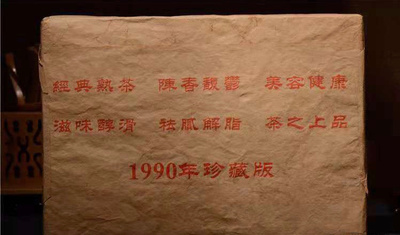 經典熟茶 陳香馥鬱 美容健康
滋味醇滑 祛膩解脂 茶之上品
1990年珍藏版